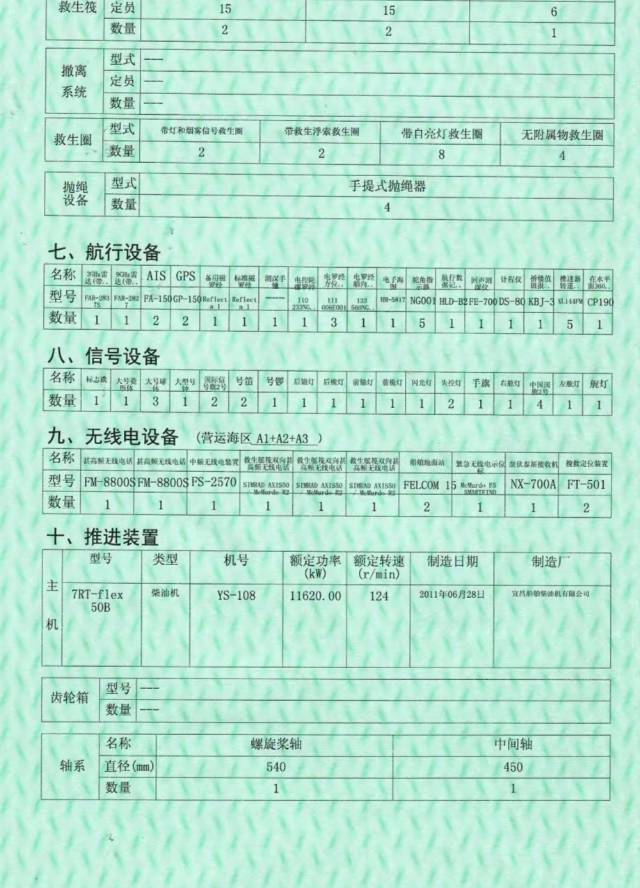 救生筏 定员 15 15 6
数量 2 2 1
撤离系统 型式 ---
定员 ---
数量 ---
救生圈 型式 带灯和烟雾信号救生圈 带救生浮索救生圈 带自亮灯救生圈 无附属物救生圈
数量 2 2 8 4
抛绳设备 型式 手提式抛绳器
数量 4
七、航行设备
名称 AIS GPS 测深手锤 计程仪
型号 FA-150 GP-150 ------ NG001 HLD-B2 FE-700 DS-80 KBJ-3 CP190
数量 1 1 2 2 1 1 1 1 3 1 1 5 1 1 1 1 5 1
八、信号设备
名称 标志旗 大号菱形体 大号球体 大型号钟 国际信号旗2号 号笛 号锣 后锚灯 后桅灯 前锚灯 前桅灯 闪光灯 失控灯 手旗 右舷灯 中国国旗2号 左舷灯 艉灯
数量 1 1 3 1 2 2 1 1 1 1 1 1 2 1 1 4 1 1
九、无线电设备 (营运海区 A1+A2+A3 )
名称 甚高频无线电话 甚高频无线电话 中频无线电装置 救生艇筏双向甚高频无线电话 救生艇筏双向甚高频无线电话 救生艇筏双向甚高频无线电话 船舶地面站 紧急无线电示位标 奈伏泰斯接收机 搜救定位装置
型号 FM-8800S FM-8800S FS-2570 SIMRAD AXIS50 / McMurdo R2 SIMRAD AXIS50 / McMurdo R2 SIMRAD AXIS50 / McMurdo R2 FELCOM 15 McMurdo E5 SMARTFIND NX-700A FT-501
数量 1 1 1 1 1 1 2 1 1 2
十、推进装置
主机 型号 类型 机号 额定功率(kW) 额定转速(r/min) 制造日期 制造厂
7RT-flex50B 柴油机 YS-108 11620.00 124 2011年06月28日 宜昌船舶柴油机有限公司
齿轮箱 型号 ---
数量 ---
轴系 名称 螺旋桨轴 中间轴
直径(mm) 540 450
数量 1 1